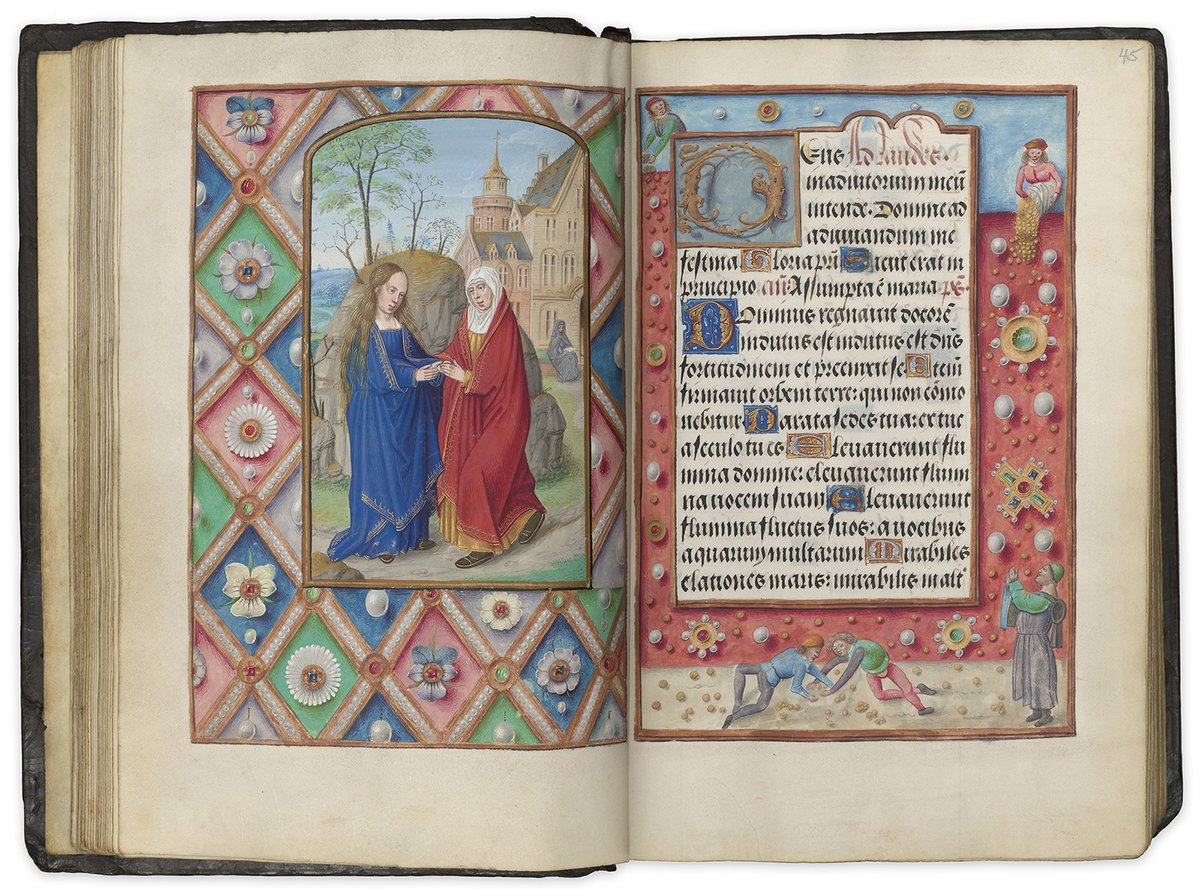 45
Deus Ad laudes.
in adiutorium meū
intende. Domine ad
adiuuandum me
festina Gloria pr̄i Sicut erat in
principio an̄ Assumpta ē maria ps.
Dominus regnauit decorē
indutus est indutus est dn̄s
fortitudinem et precinxit se Etem̄
firmauit orbem terre: qui non cōmo
uebitur Parata sedes tua: ex tūc
a seculo tu es Eleuauerunt flu
mina domine: eleuauerunt flumi
na uocem suam Eleuauerunt
flumina fluctus suos: a uocibus
aquarum multarum Mirabiles
elationes maris: mirabilis in alt°